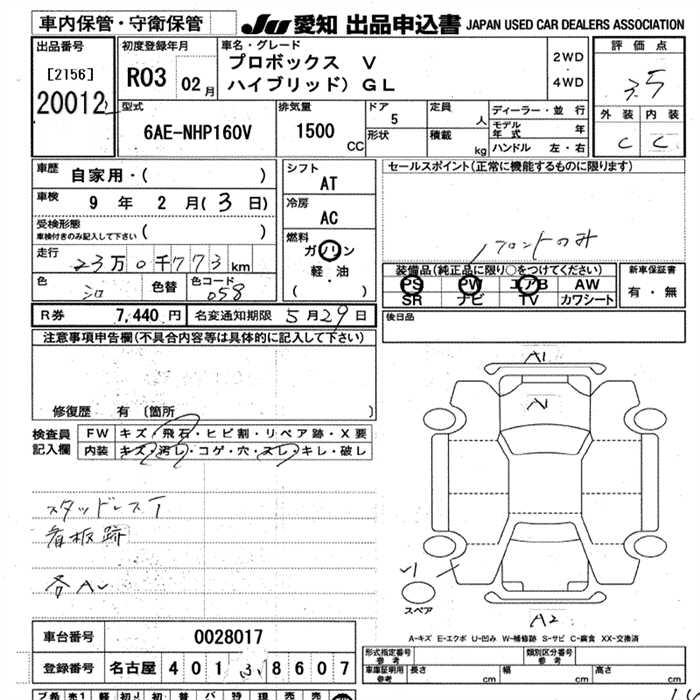 車内保管・守衛保管
JU 愛知 出品申込書 JAPAN USED CAR DEALERS ASSOCIATION
出品番号
[2156]
20012
初度登録年月
R03 02月
車名・グレード
プロボックス V
ハイブリッド) GL
2WD
・
4WD
評価点
3.5
外装 内装
C C
型式
6AE-NHP160V
排気量
1500 CC
ドア
5
形状
定員 人
積載 kg
ディーラー・並行
モデル年式 年
ハンドル 左・右
車歴
自家用・( )
車検
9 年 2 月 ( 3 日)
受検形態
車検付きのみ記入して下さい ( )
走行
23万0千773km
色
シロ
色替
色コード
058
シフト
AT
冷房
AC
燃料
ガソリン
軽・油
( )
セールスポイント(正常に機能するものに限ります)
フロントのみ
装備品(純正品に限り○をつけてください)
PS PW エアB AW
SR ナビ TV カワシート
新車保証書
有・無
R券 7,440 円 名変通知期限 5月29日
後日品
注意事項申告欄(不具合内容等は具体的に記入して下さい)
修復歴 有 〔箇所 〕
検査員記入欄
FW キズ・飛石・ヒビ割・リペア跡・X要
内装 キズ・汚レ・コゲ・穴・スレ・キレ・破レ
スタッドレスT
看板跡
各A
A1
A2
スペア
A-キズ E-エクボ U-凹み W-補修跡 S-サビ C-腐食 XX-交換済
車台番号 0028017
登録番号 名古屋 401 8607
形式指定番号 参考
類別区分番号 参考
車庫証明用 参考 長さ cm 幅 cm 高さ cm